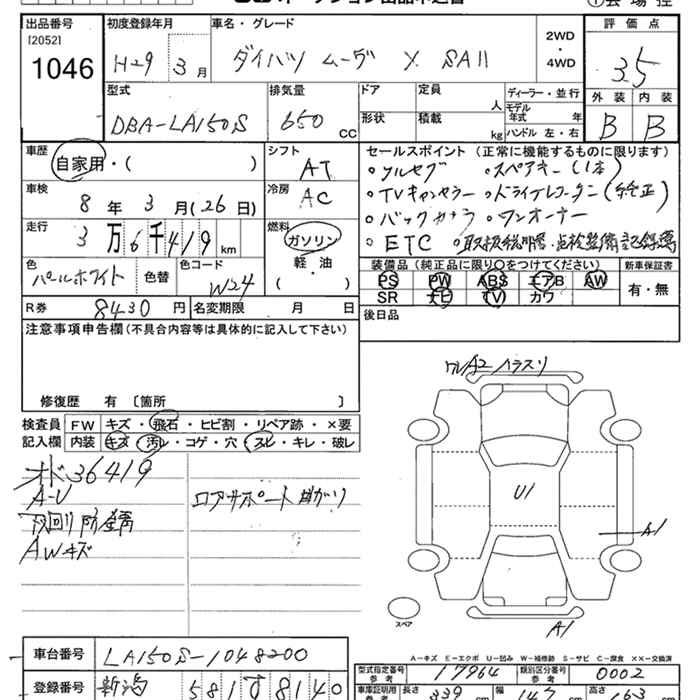 オークション出品申込書
① 会場控
出品番号 初度登録年月 車名・グレード 評価点
[2052]
1046
H29年 3月 ダイハツ ムーヴ X SAⅡ 2WD・4WD 3.5
外装 内装
B B
型式 排気量 ドア 定員 人 ディーラー・並行
DBA-LA150S 650 CC 形状 積載 kg モデル年式 年
ハンドル 左・右
車歴 シフト セールスポイント (正常に機能するものに限ります)
自家用・( ) AT ・フルセグ ・スペアキー(1本)
車検 冷房 ・TVキャンセラー ・ドライブレコーダー(純正)
8年 3月(26日) AC ・バックカメラ ・ワンオーナー
走行 燃料 ・ETC ・取扱説明書・点検整備記録簿
3万6千419km ガソリン
軽・油
( )
色 色替 色コード 装備品 (純正品に限り○をつけてください) 新車保証書
パールホワイト W24 PS PW ABS エアB AW 有・無
SR ナビ TV カワ
R券 8430円 名変期限 月 日 後日品
注意事項申告欄(不具合内容等は具体的に記入して下さい)
修復歴 有 〔箇所 〕
検査員記入欄 FW キズ・飛石・ヒビ割・リペア跡・×要
内装 キズ・汚レ・コゲ・穴・スレ・キレ・破レ
オド36419
A-U ロアサポート曲がり
下回り防錆
AWキズ
A2
U1
A1
A1
スペア
A-キズ E-エクボ U-凹み W-補修跡 S-サビ C-腐食 ××-交換済
車台番号 LA150S-1048200
型式指定番号 参考 17964 類別区分番号 参考 0002
登録番号 新潟 581 す 8140
車庫証明用 長さ 339 幅 147 高さ 163